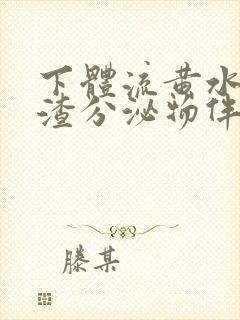 下體流黃水
渣分泌物伴
滕某